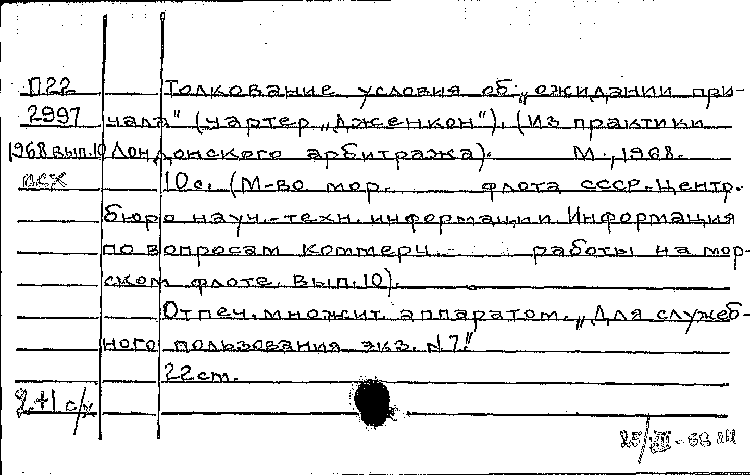 П22 Толкование условия об „ожидании при-
2997 чала" (чартер „Дженкон"). (Из практики
1968 вып.10 Лондонского арбитража). М., 1968.
осх 10 с. (М-во мор. флота СССР. Центр.
бюро науч.-техн. информации. Информация
по вопросам коммерч. работы на мор-
ском флоте. Вып. 10).
Отпеч. множит. аппаратом. „Для служеб-
ного пользования экз. N 7."
22 см.
2+1 с/х
25/III-68